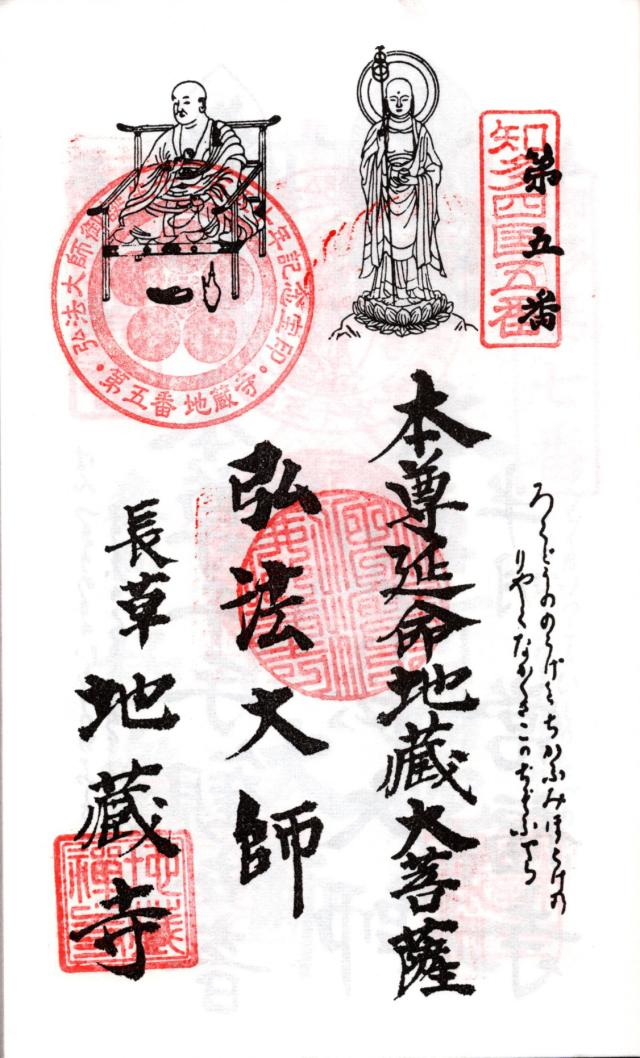 第五番
知多四国五番
ろくどうののうげをちかふみほとけの
りやくながくさこのぢ
本尊延命地蔵大菩薩
弘法大師
長草 地蔵寺
弘法大師御
十年記念宝印・第五番地蔵寺・
地蔵禅寺